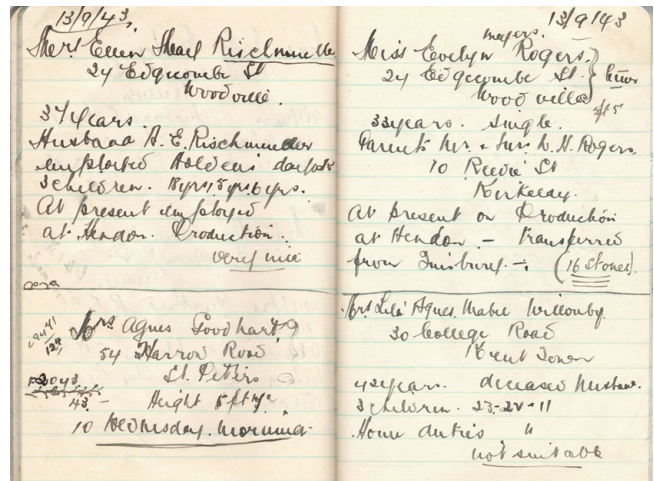 13/9/43
Mrs. Ellen Rischmueller
24 Edgcombe St
Woodville.
37 years.
Husband A. E. Rischmueller
employed Holdens
3 children. 5yrs, 6yrs.
At present employed
at Hendon. Production.
very nice
Mrs Agnes Goodhart
54 Harrow Road
St. Peters
Height 5ft
10 Wednesday. morning.
13/9/43
Miss Evelyn Rogers.
24 Edgcombe St.
Woodville
33 years. single.
Parents Mr. & Mrs. W. H. Rogers.
10 St
At present on Production
at Hendon – transferred
from – (16 stones).
Mrs Lila Agnes Mabel
30 College Road
Kent Town
42 years. deceased husband.
3 children. 11
Home duties "
not suitable